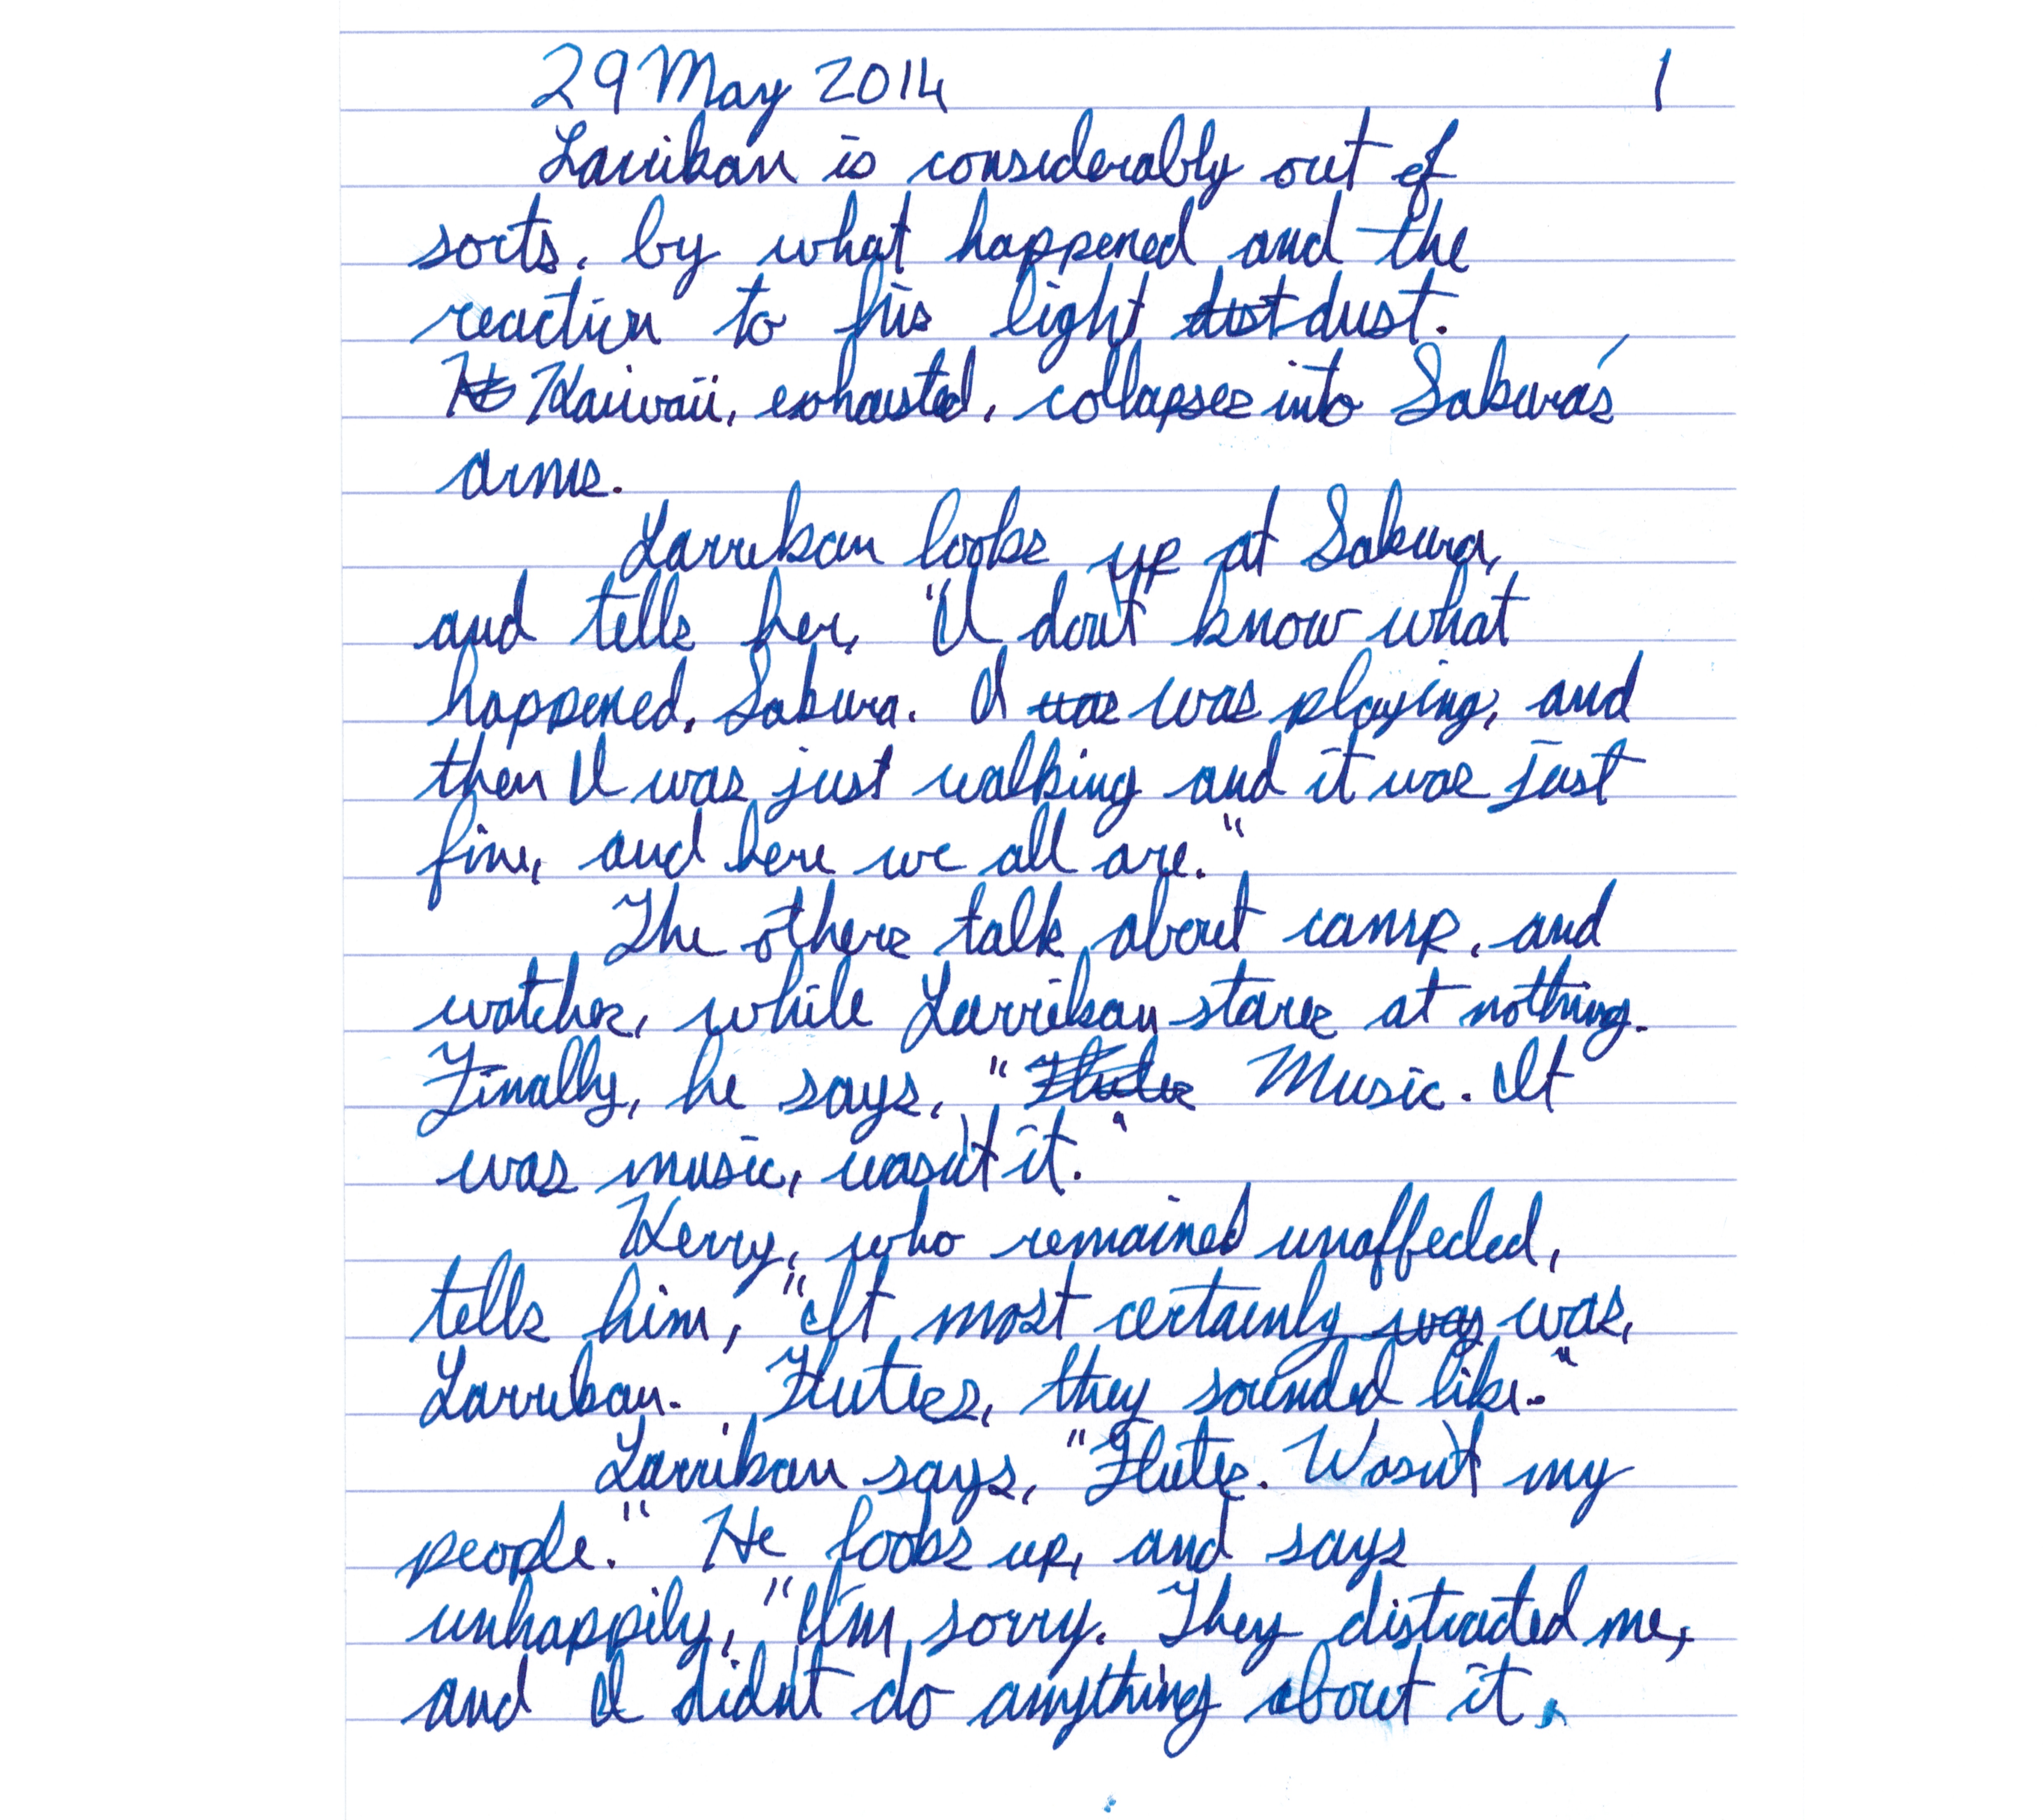 29 May 2014 1
Larrikan is considerably out of
sorts, by what happened and the
reaction to his light dust dust.
He Kaiwaii, exhausted, collapses into Sakura's
arms.
Larrikan looks up at Sakura,
and tells her, "I don't know what
happened, Sakura. I was was playing, and
then I was just walking and it was just
fine, and here we all are."
The others talk about camp, and
watches, while Larrikan stares at nothing.
Finally, he says, "Flutes Music. It
was music, wasn't it."
Kerry, who remained unaffected,
tells him, "It most certainly was was,
Larrikan. Flutes, they sounded like."
Larrikan says, "Flutes. Wasn't my
people." He looks up, and says
unhappily, "I'm sorry. They distracted me,
and I didn't do anything about it,